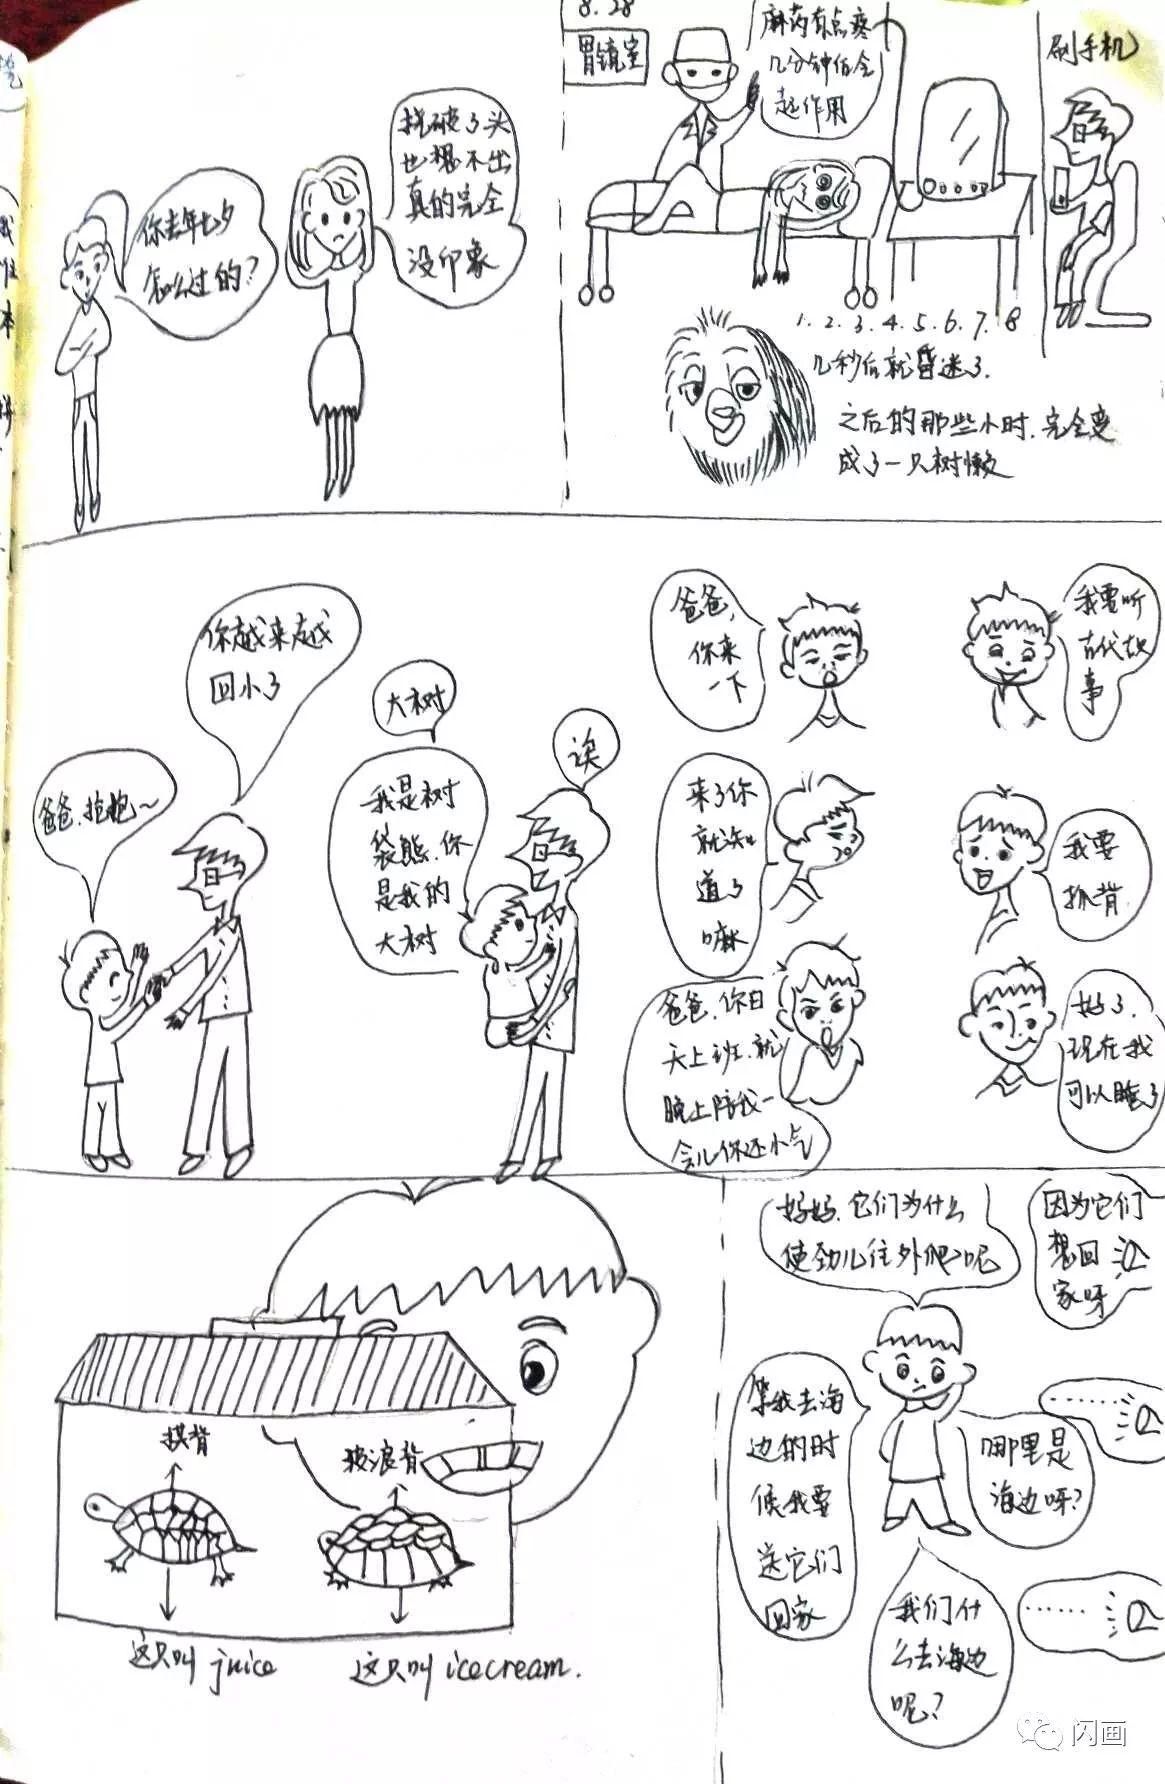 你去年七夕
怎么过的？
挠破了头
也想不出
真的完全
没印象
8.28
胃镜室
麻药有点疼
几分钟后全
起作用
刷手机
1.2.3.4.5.6.7.8
几秒后就昏迷了.
之后的那些小时.完全变
成了一只树懒
爸爸.抱抱~
你越来越
回小了
大树
我是树
袋熊.你
是我的
大树
诶
爸爸,
你来
一下
我要听
古代故
事
来了你
就知
道了
嘛
我要
抓背
爸爸.你白
天上班.就
晚上陪我一
会儿你还小气
好了.
现在我
可以睡了
拱背
波浪背
这只叫juice
这只叫icecream.
妈妈.它们为什么
使劲儿往外爬呢
因为它们
想回
家呀
等我去海
边的时
候我要
送它们
回家
哪里是
海边呀?
......
我们什
么去海边
呢?
......
闪画